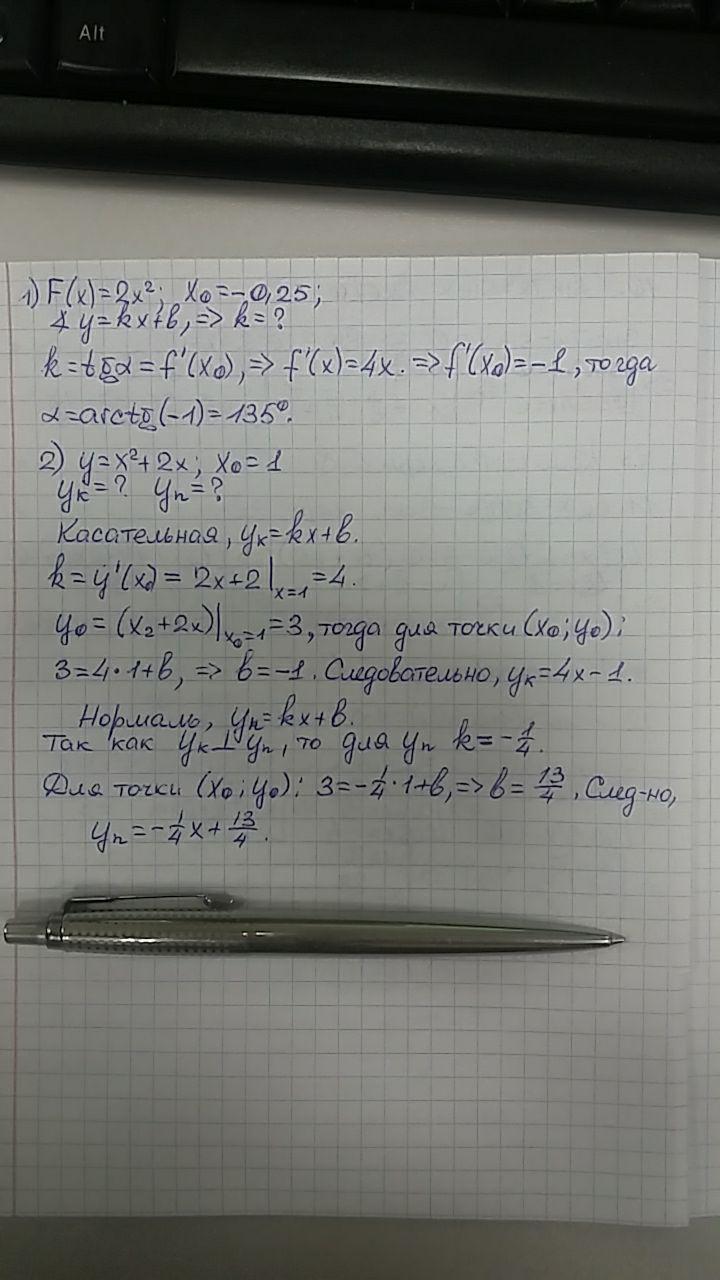 Alt
1) F(x)=2x²; x₀=-0,25;
∡ y=kx+b, => k=?
k=tgα=f'(x₀), => f'(x)=4x. => f'(x₀)=-1, тогда
α=arctg(-1)=135°.
2) y=x²+2x; x₀=1
yₖ=? yₙ=?
Касательная, yₖ=kx+b.
k=y'(x₀)=2x+2|ₓ₌₁=4.
y₀=(x₂+2x)|ₓ₀₌₁=3, тогда для точки (x₀; y₀):
3=4·1+b, => b=-1. Следовательно, yₖ=4x-1.
Нормаль, yₙ=kx+b.
Так как yₖ⊥yₙ, то для yₙ k=-1/4.
Для точки (x₀; y₀): 3=-1/4·1+b, => b=13/4. След-но,
yₙ=-1/4x+13/4.